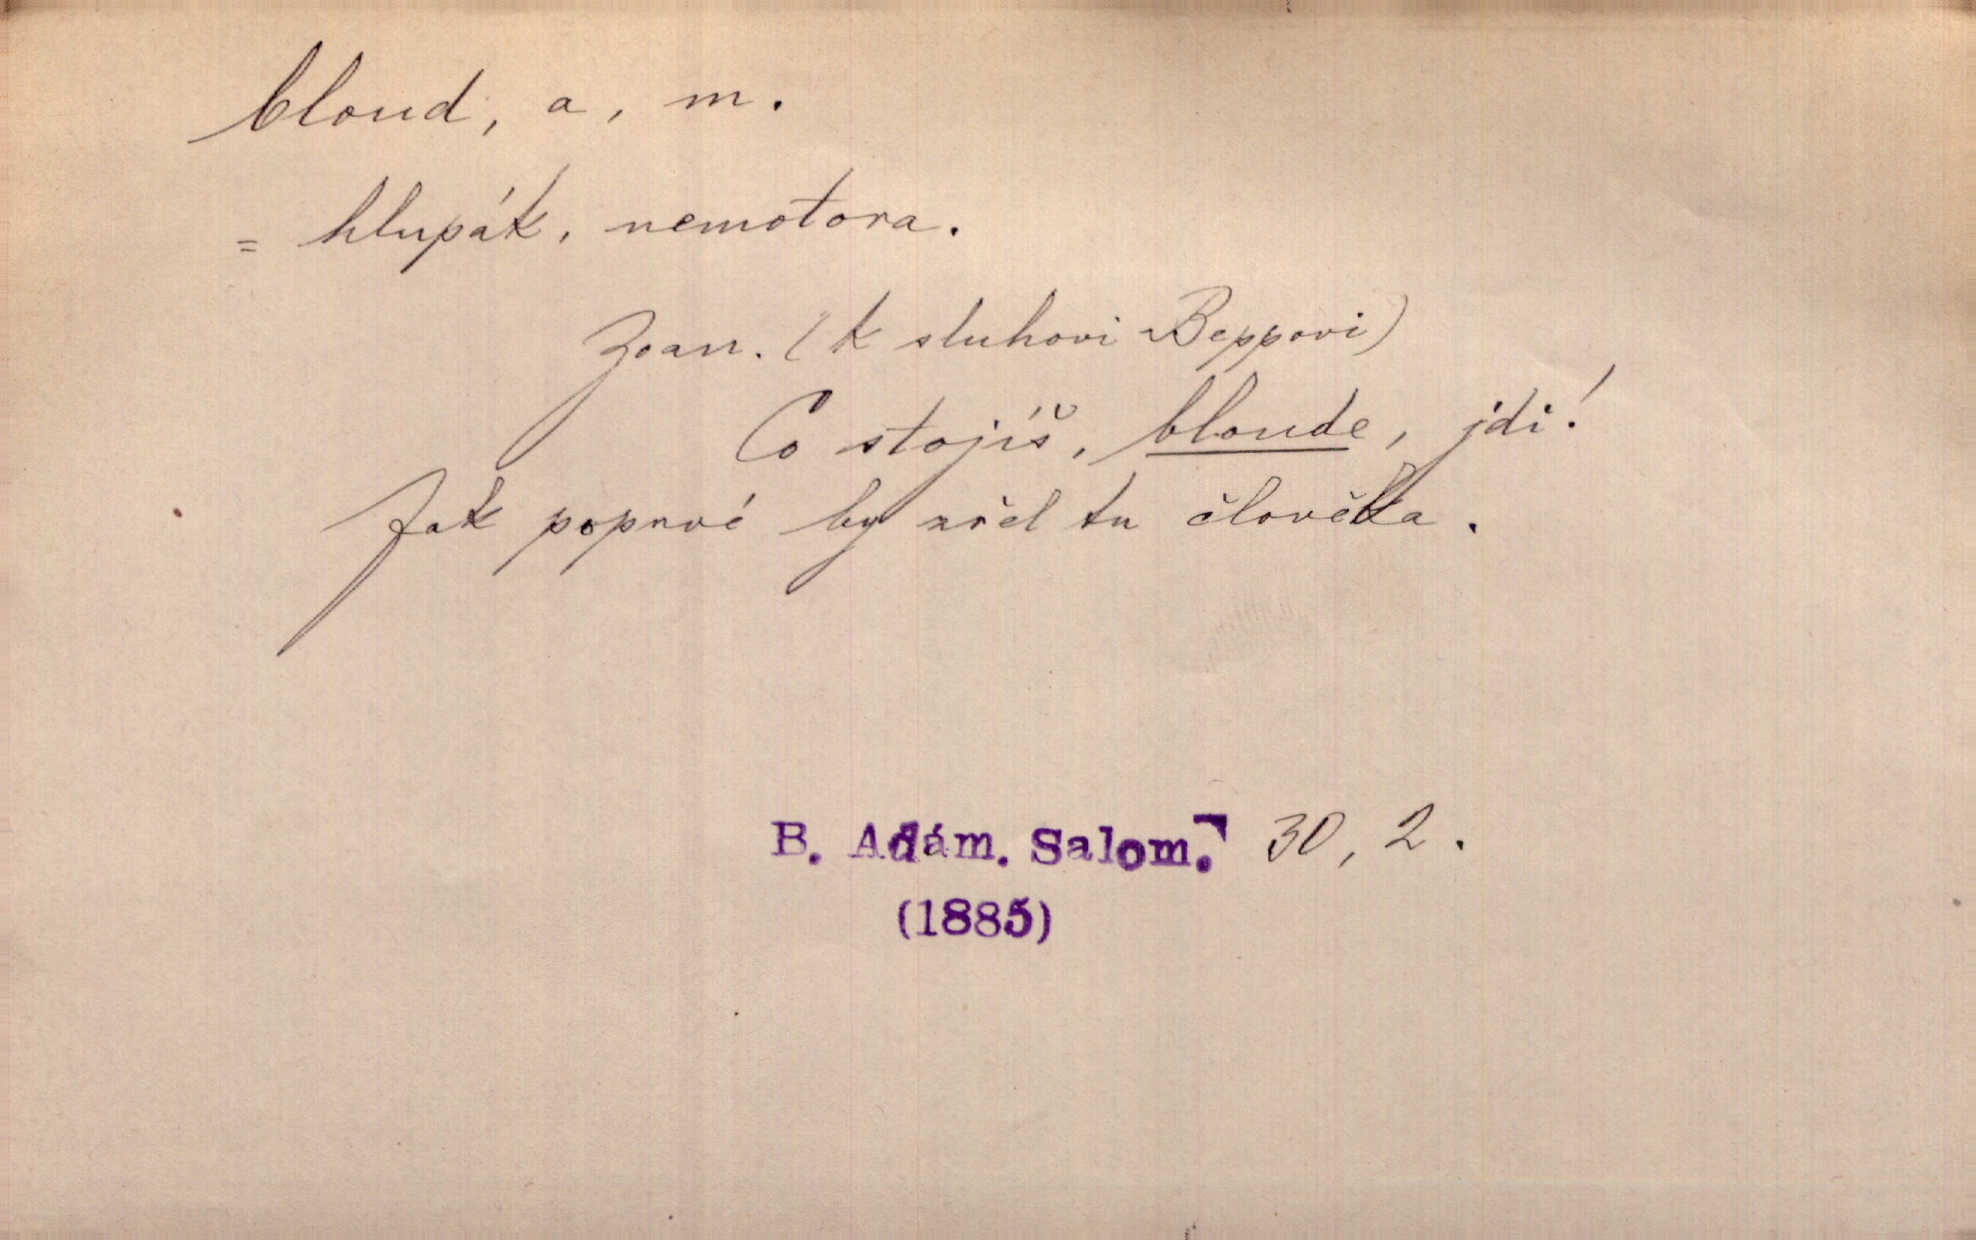 bloud, a, m.
= hlupák, nemotora.
Zoan. (k sluhovi Beppovi)
Co stojíš, bloude, jdi!
Jak poprvé by zřel tu člověka.
B. Adám. Salom. 30, 2.
(1885)